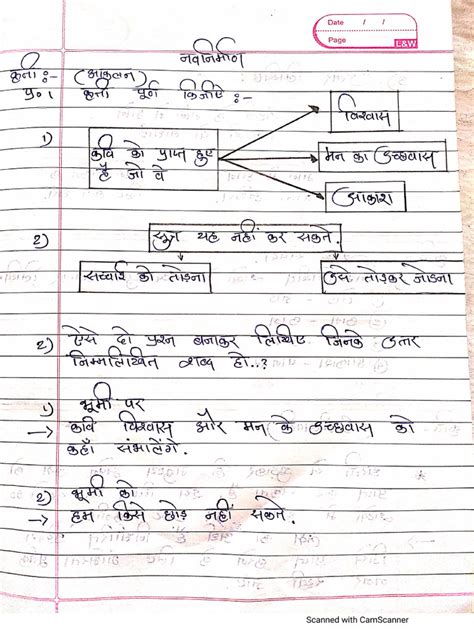 Date / /
Page
L&W
नवनिर्माण
कृती :- (आकलन)
प्र०१ कृती पूर्ण किजीए :-
1) कवि को प्राप्त हुए
है जो वे
विश्वास
मन का उच्छवास
आकाश
2) यह नहीं कर सकते.
सच्चाई को तोडना
उसे तोडकर जोडना
2) ऐसे दो प्रश्न बनाकर लिखिए जिनके उत्तर
निम्नलिखित शब्द हो..?
1) भूमी पर
→ कवि विश्वास और मन के उच्छवास को
कहाँ संभालेंगे.
2) भूमी को
→ हम किसे छोड नहीं सकते.
Scanned with CamScanner